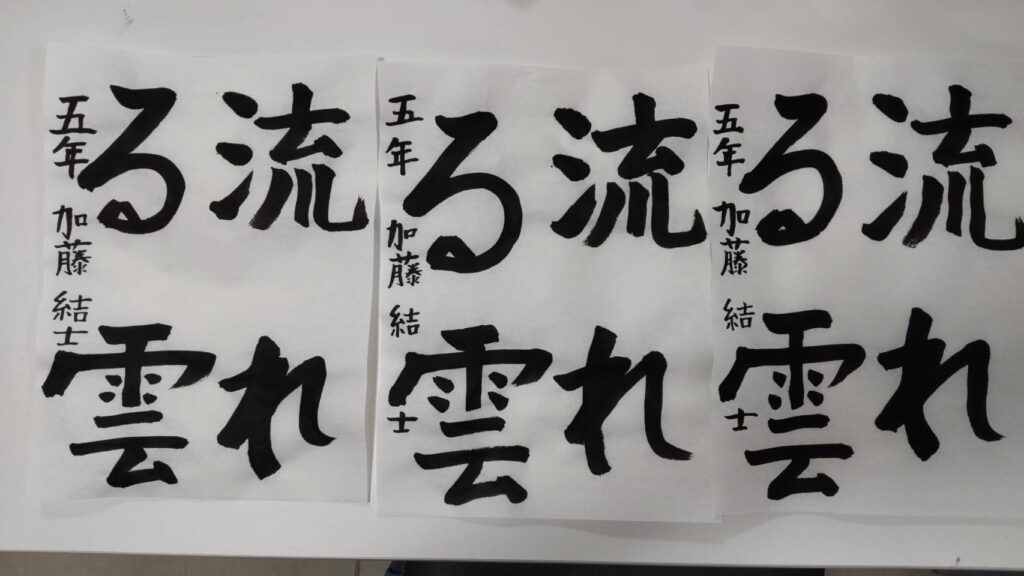 流れ
る雲
五年 加藤 結士
流れ
る雲
五年 加藤 結士
流れ
る雲
五年 加藤 結士